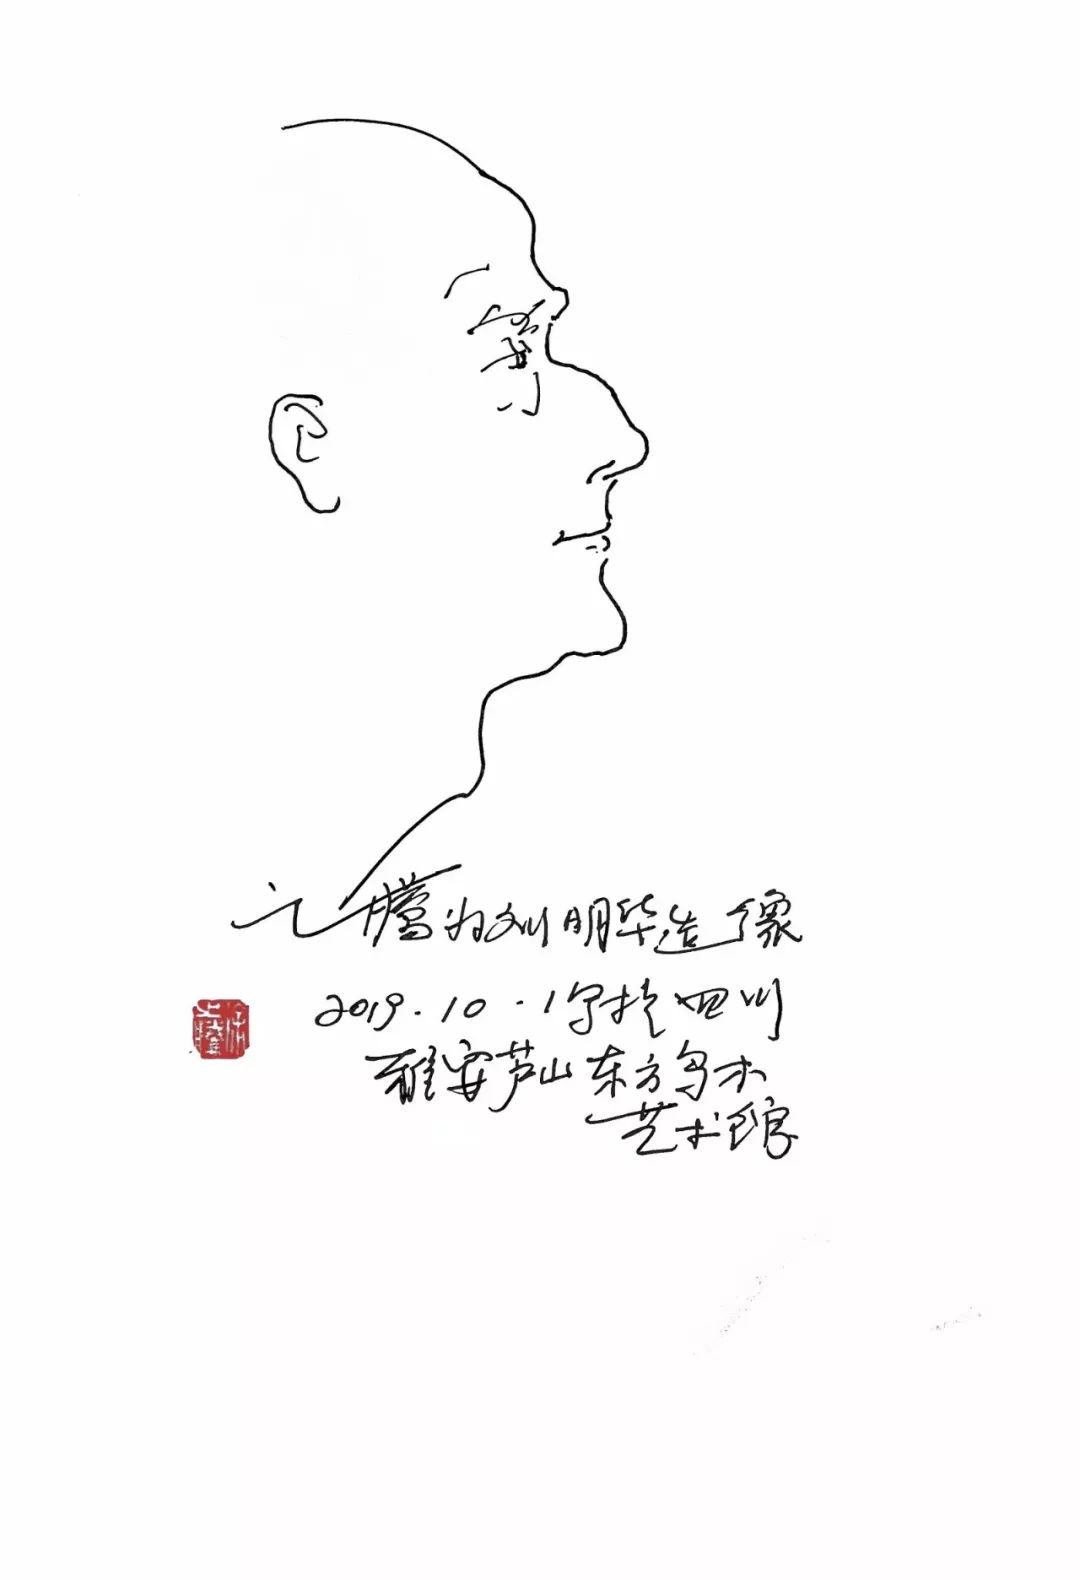 之 为刘明华造像
2019.10.1写於四川
雅安芦山东方乌木
艺术馆